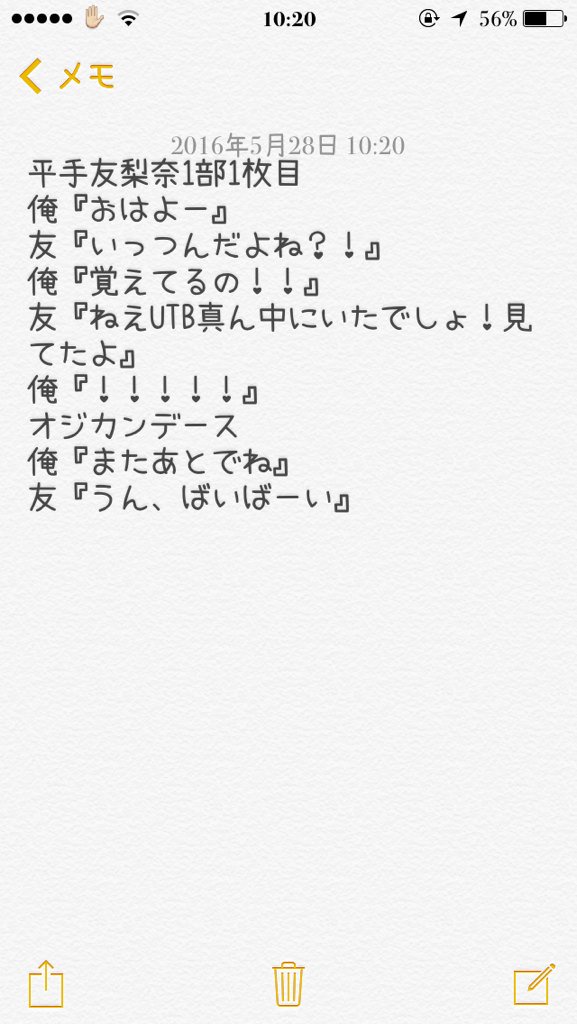 10:20
56%
メモ
2016年5月28日 10:20
平手友梨奈1部1枚目
俺『おはよー』
友『いっつんだよね？！』
俺『覚えてるの！！』
友『ねえUTB真ん中にいたでしょ！見
てたよ』
俺『！！！！！』
オジカンデース
俺『またあとでね』
友『うん、ばいばーい』